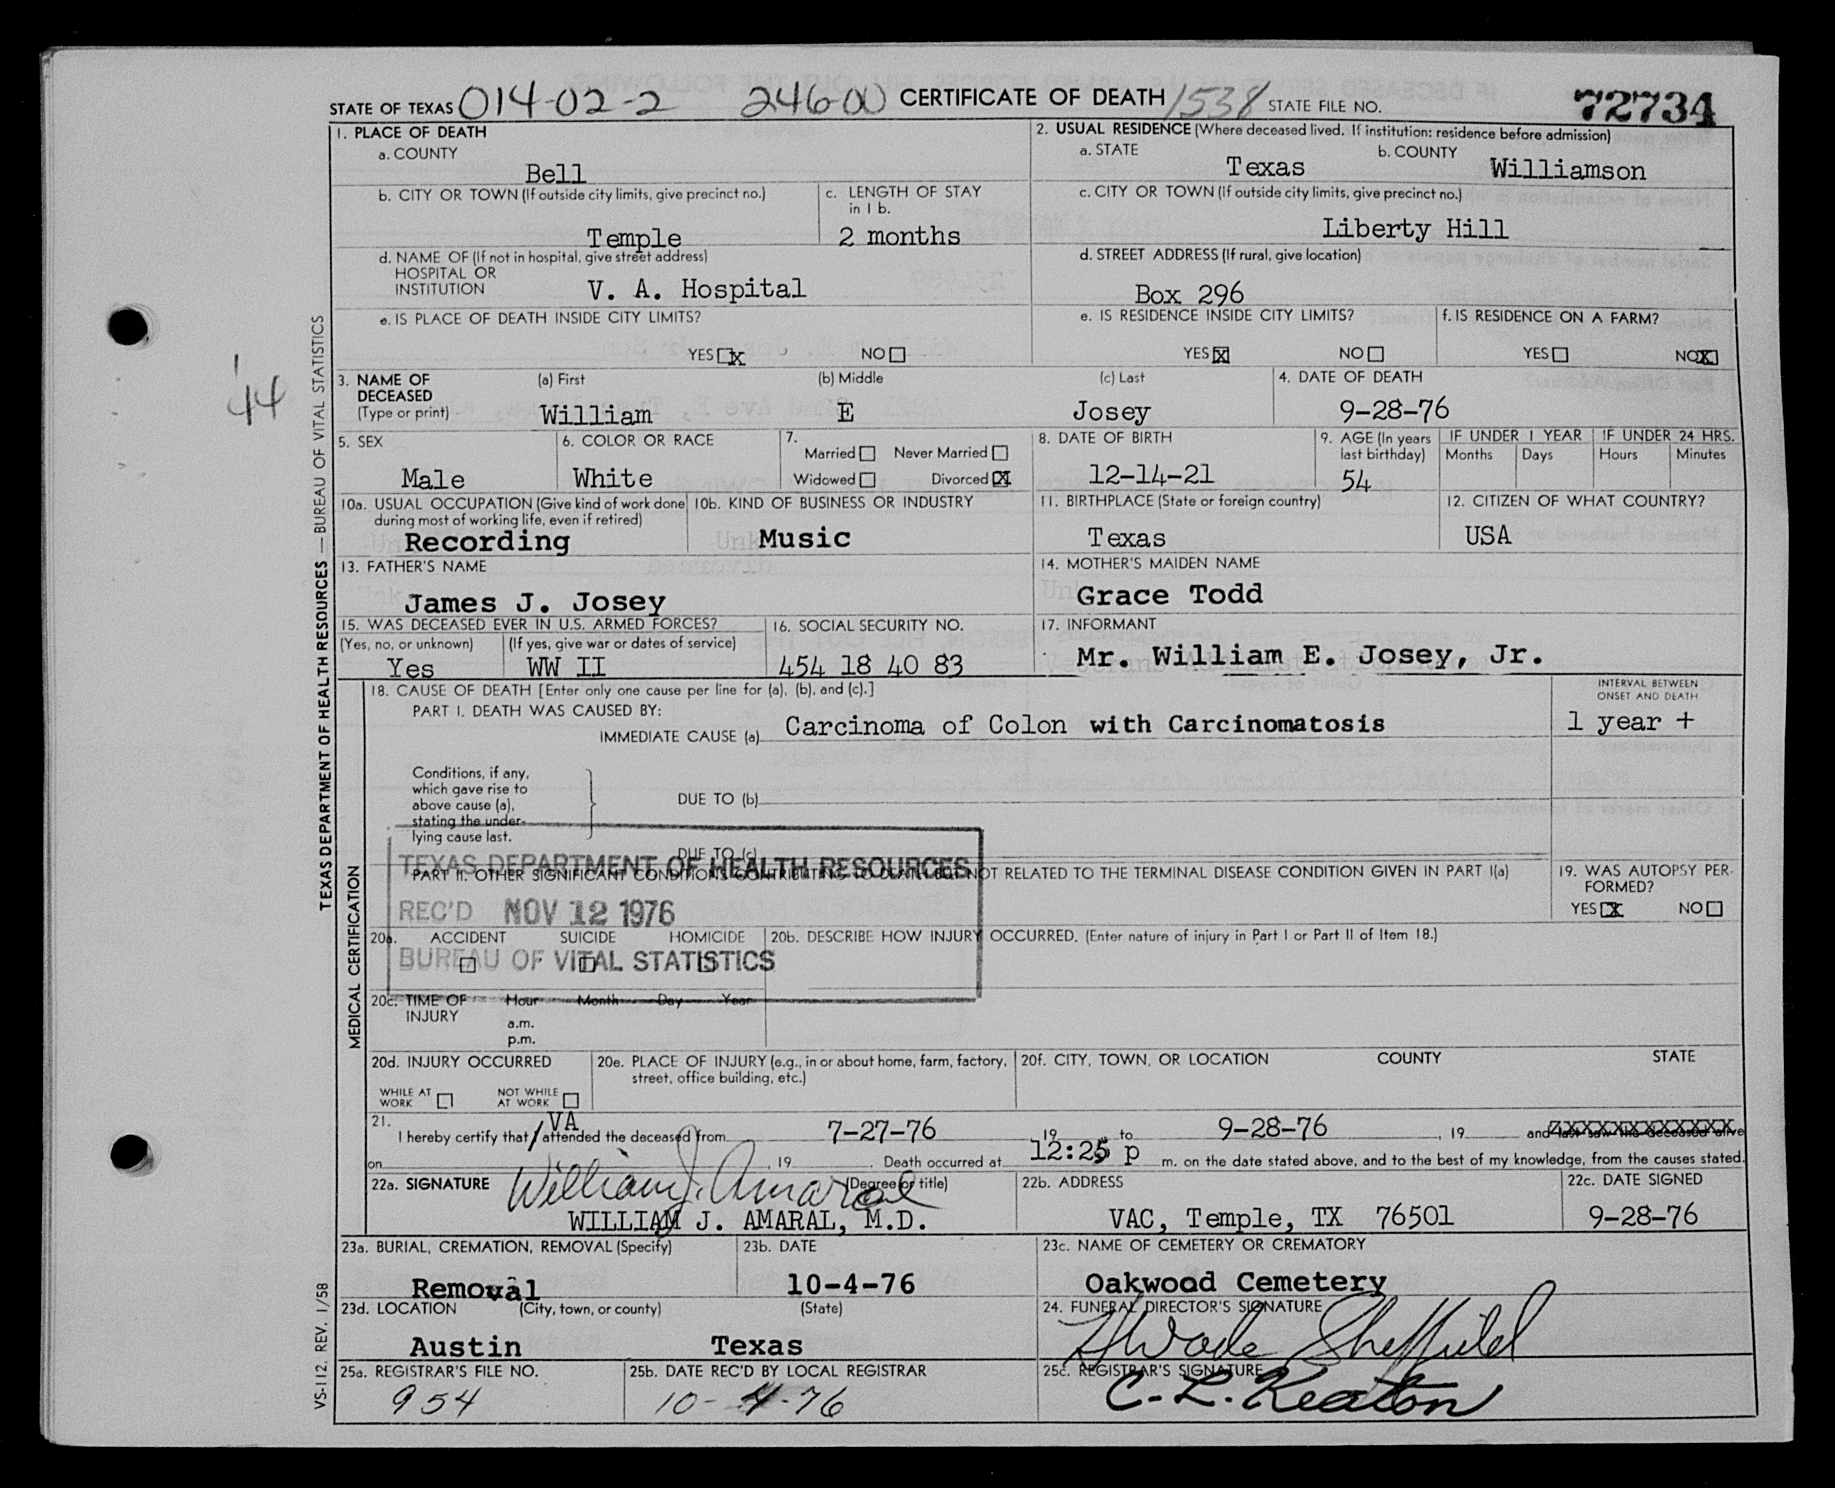 STATE OF TEXAS 014-02-2 246-00 CERTIFICATE OF DEATH 1538 STATE FILE NO. 72734
1. PLACE OF DEATH
a. COUNTY
Bell
2. USUAL RESIDENCE (Where deceased lived. If institution: residence before admission)
a. STATE
Texas
b. COUNTY
Williamson
b. CITY OR TOWN (If outside city limits, give precinct no.)
Temple
c. LENGTH OF STAY
in 1 b.
2 months
c. CITY OR TOWN (If outside city limits, give precinct no.)
Liberty Hill
d. NAME OF (If not in hospital, give street address)
HOSPITAL OR
INSTITUTION
V. A. Hospital
d. STREET ADDRESS (If rural, give location)
Box 296
e. IS PLACE OF DEATH INSIDE CITY LIMITS?
YES X NO
e. IS RESIDENCE INSIDE CITY LIMITS?
YES X NO
f. IS RESIDENCE ON A FARM?
YES NO X
44
3. NAME OF
DECEASED
(Type or print)
(a) First
William
(b) Middle
E
(c) Last
Josey
4. DATE OF DEATH
9-28-76
5. SEX
Male
6. COLOR OR RACE
White
7.
Married Never Married
Widowed Divorced X
8. DATE OF BIRTH
12-14-21
9. AGE (In years
last birthday)
54
IF UNDER 1 YEAR
Months Days
IF UNDER 24 HRS.
Hours Minutes
10a. USUAL OCCUPATION (Give kind of work done
during most of working life, even if retired)
Recording
10b. KIND OF BUSINESS OR INDUSTRY
Music
11. BIRTHPLACE (State or foreign country)
Texas
12. CITIZEN OF WHAT COUNTRY?
USA
13. FATHER'S NAME
James J. Josey
14. MOTHER'S MAIDEN NAME
Grace Todd
15. WAS DECEASED EVER IN U.S. ARMED FORCES?
(Yes, no, or unknown)
Yes
(If yes, give war or dates of service)
WW II
16. SOCIAL SECURITY NO.
454 18 40 83
17. INFORMANT
Mr. William E. Josey, Jr.
TEXAS DEPARTMENT OF HEALTH RESOURCES — BUREAU OF VITAL STATISTICS
MEDICAL CERTIFICATION
18. CAUSE OF DEATH [Enter only one cause per line for (a), (b), and (c).]
PART I. DEATH WAS CAUSED BY:
IMMEDIATE CAUSE (a) Carcinoma of Colon with Carcinomatosis
INTERVAL BETWEEN
ONSET AND DEATH
1 year +
Conditions, if any,
which gave rise to
above cause (a),
stating the under-
lying cause last.
DUE TO (b)
DUE TO (c)
PART II. OTHER SIGNIFICANT CONDITIONS CONTRIBUTING TO DEATH BUT NOT RELATED TO THE TERMINAL DISEASE CONDITION GIVEN IN PART I(a)
19. WAS AUTOPSY PER-
FORMED?
YES X NO
TEXAS DEPARTMENT OF HEALTH RESOURCES
REC'D NOV 12 1976
BUREAU OF VITAL STATISTICS
20a. ACCIDENT SUICIDE HOMICIDE
20b. DESCRIBE HOW INJURY OCCURRED. (Enter nature of injury in Part I or Part II of Item 18.)
20c. TIME OF
INJURY
Hour Month Day Year
a.m.
p.m.
20d. INJURY OCCURRED
WHILE AT
WORK
NOT WHILE
AT WORK
20e. PLACE OF INJURY (e.g., in or about home, farm, factory,
street, office building, etc.)
20f. CITY, TOWN, OR LOCATION COUNTY STATE
21.
VA
I hereby certify that / attended the deceased from 7-27-76 19 to 9-28-76, 19 and last saw the deceased alive
on , 19 . Death occurred at 12:25 p m. on the date stated above, and to the best of my knowledge, from the causes stated.
22a. SIGNATURE
William J. Amaral
(Degree or title)
WILLIAM J. AMARAL, M.D.
22b. ADDRESS
VAC, Temple, TX 76501
22c. DATE SIGNED
9-28-76
23a. BURIAL, CREMATION, REMOVAL (Specify)
Removal
23b. DATE
10-4-76
23c. NAME OF CEMETERY OR CREMATORY
Oakwood Cemetery
23d. LOCATION (City, town, or county) (State)
Austin Texas
24. FUNERAL DIRECTOR'S SIGNATURE
H Wade Sheffield
25a. REGISTRAR'S FILE NO.
954
25b. DATE REC'D BY LOCAL REGISTRAR
10-4-76
25c. REGISTRAR'S SIGNATURE
C. L. Keaton
VS-112. REV. 1/58